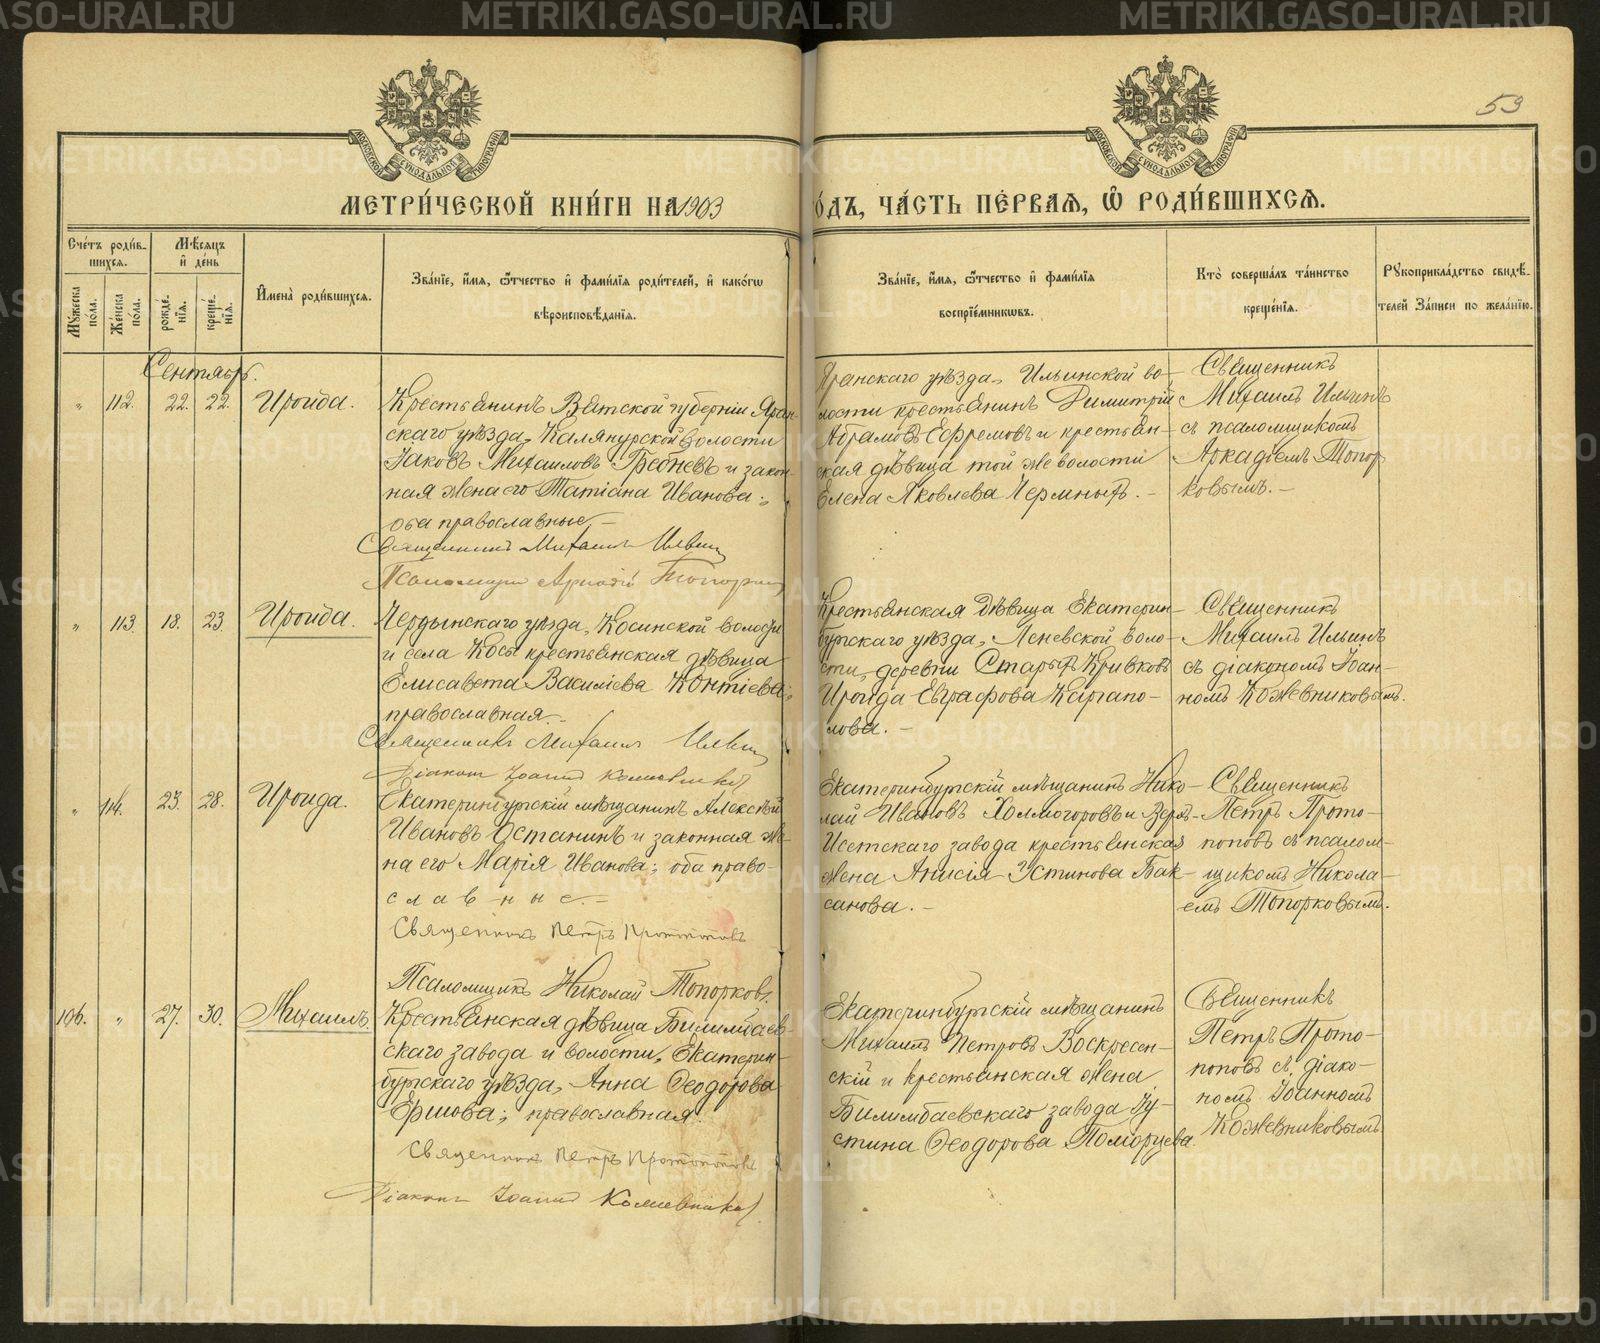 METRIKI.GASO-URAL.RU
53
МОСКОВСКОЙ СУНОДАЛЬНОЙ ТИПОГРАФІИ
МОСКОВСКОЙ СУНОДАЛЬНОЙ ТИПОГРАФІИ
МЕТРИ́ЧЕСКОЙ КНИ́ГИ НА 1903
ОДЪ, ЧА́СТЬ ПЕ́РВАЯ, Ѡ РОДИ́ВШИХСЯ.
Сче́тъ роди́в-
шихся.
Му́жеска пола.
Же́нска пола.
Мѣсяцъ
и де́нь
рожде́нія.
креще́нія.
Имена́ роди́вшихся.
Зва́ніе, и́мя, ѻ́тчество и фами́лія роди́телей, и како́гѡ
вѣроисповѣ́данія.
Зва́ніе, и́мя, ѻ́тчество и фами́лія
воспріе́мниковъ.
Кто̀ соверша́лъ та́инство
креще́нія.
Рукоприкла́дство свидѣ́-
телей За́писи по жела́нію.
Сентябрь.
„ 112. 22. 22. Ироида.
Крестьянинъ Вятской губерніи Яран-
скаго уѣзда, Калянурской волости
Іаковъ Михаиловъ Гребневъ и закон-
ная жена его Татіана Иванова;
оба православные.—
Священникъ Михаилъ Ильин
Псаломщик Аркадій Топорков
Яранскаго уѣзда, Ильинской во-
лости крестьянинъ Димитрій
Абрамовъ Ефремовъ и крестьян-
ская дѣвица той же волости
Елена Яковлева Чермныхъ.—
Священникъ
Михаилъ Ильинъ
съ псаломщикомъ
Аркадіемъ Топор
ковымъ.—
„ 113. 18. 23. Ироида.
Чердынскаго уѣзда, Косинской волости
и села Косы крестьянская дѣвица
Елисавета Василіева Контіева;
православная.—
Священникъ Михаилъ Ильин
Діаконъ Іоаннъ Кожевников
Крестьянская дѣвица Екатерин-
бургскаго уѣзда, Леневской воло-
сти, деревни Старыхъ Кривковъ
Ироида Евграфова Каргапо-
лова.—
Священникъ
Михаилъ Ильинъ
съ діакономъ Іоан-
номъ Кожевниковымъ.
„ 114. 23. 28. Ироида.
Екатеринбургскій мѣщанинъ Алексѣй
Ивановъ Останинъ и законная же-
на его Марія Иванова; оба право-
славные.—
Священникъ Петръ Протопоповъ
Псаломщикъ Николай Топорковъ.
Екатеринбургскій мѣщанинъ Нико-
лай Ивановъ Холмогоровъ и Верхъ-
Исетскаго завода крестьянская
жена Анисія Устинова Бак-
санова.—
Священникъ
Петръ Прото-
поповъ съ псалом-
щикомъ Никола-
емъ Топорковымъ.
106. „ 27. 30. Михаилъ
Крестьянская дѣвица Билимбаев-
скаго завода и волости, Екатерин-
бургскаго уѣзда, Анна Ѳеодорова
Ершова; православная.
Священникъ Петръ Протопоповъ
Діаконъ Іоаннъ Кожевников
Екатеринбургскій мѣщанинъ
Михаилъ Петровъ Воскресен-
скій и крестьянская жена
Билимбаевскаго завода Іу-
стина Ѳеодорова Поморцева
Священникъ
Петръ Прото-
поповъ съ діако-
номъ Іоанномъ
Кожевниковымъ